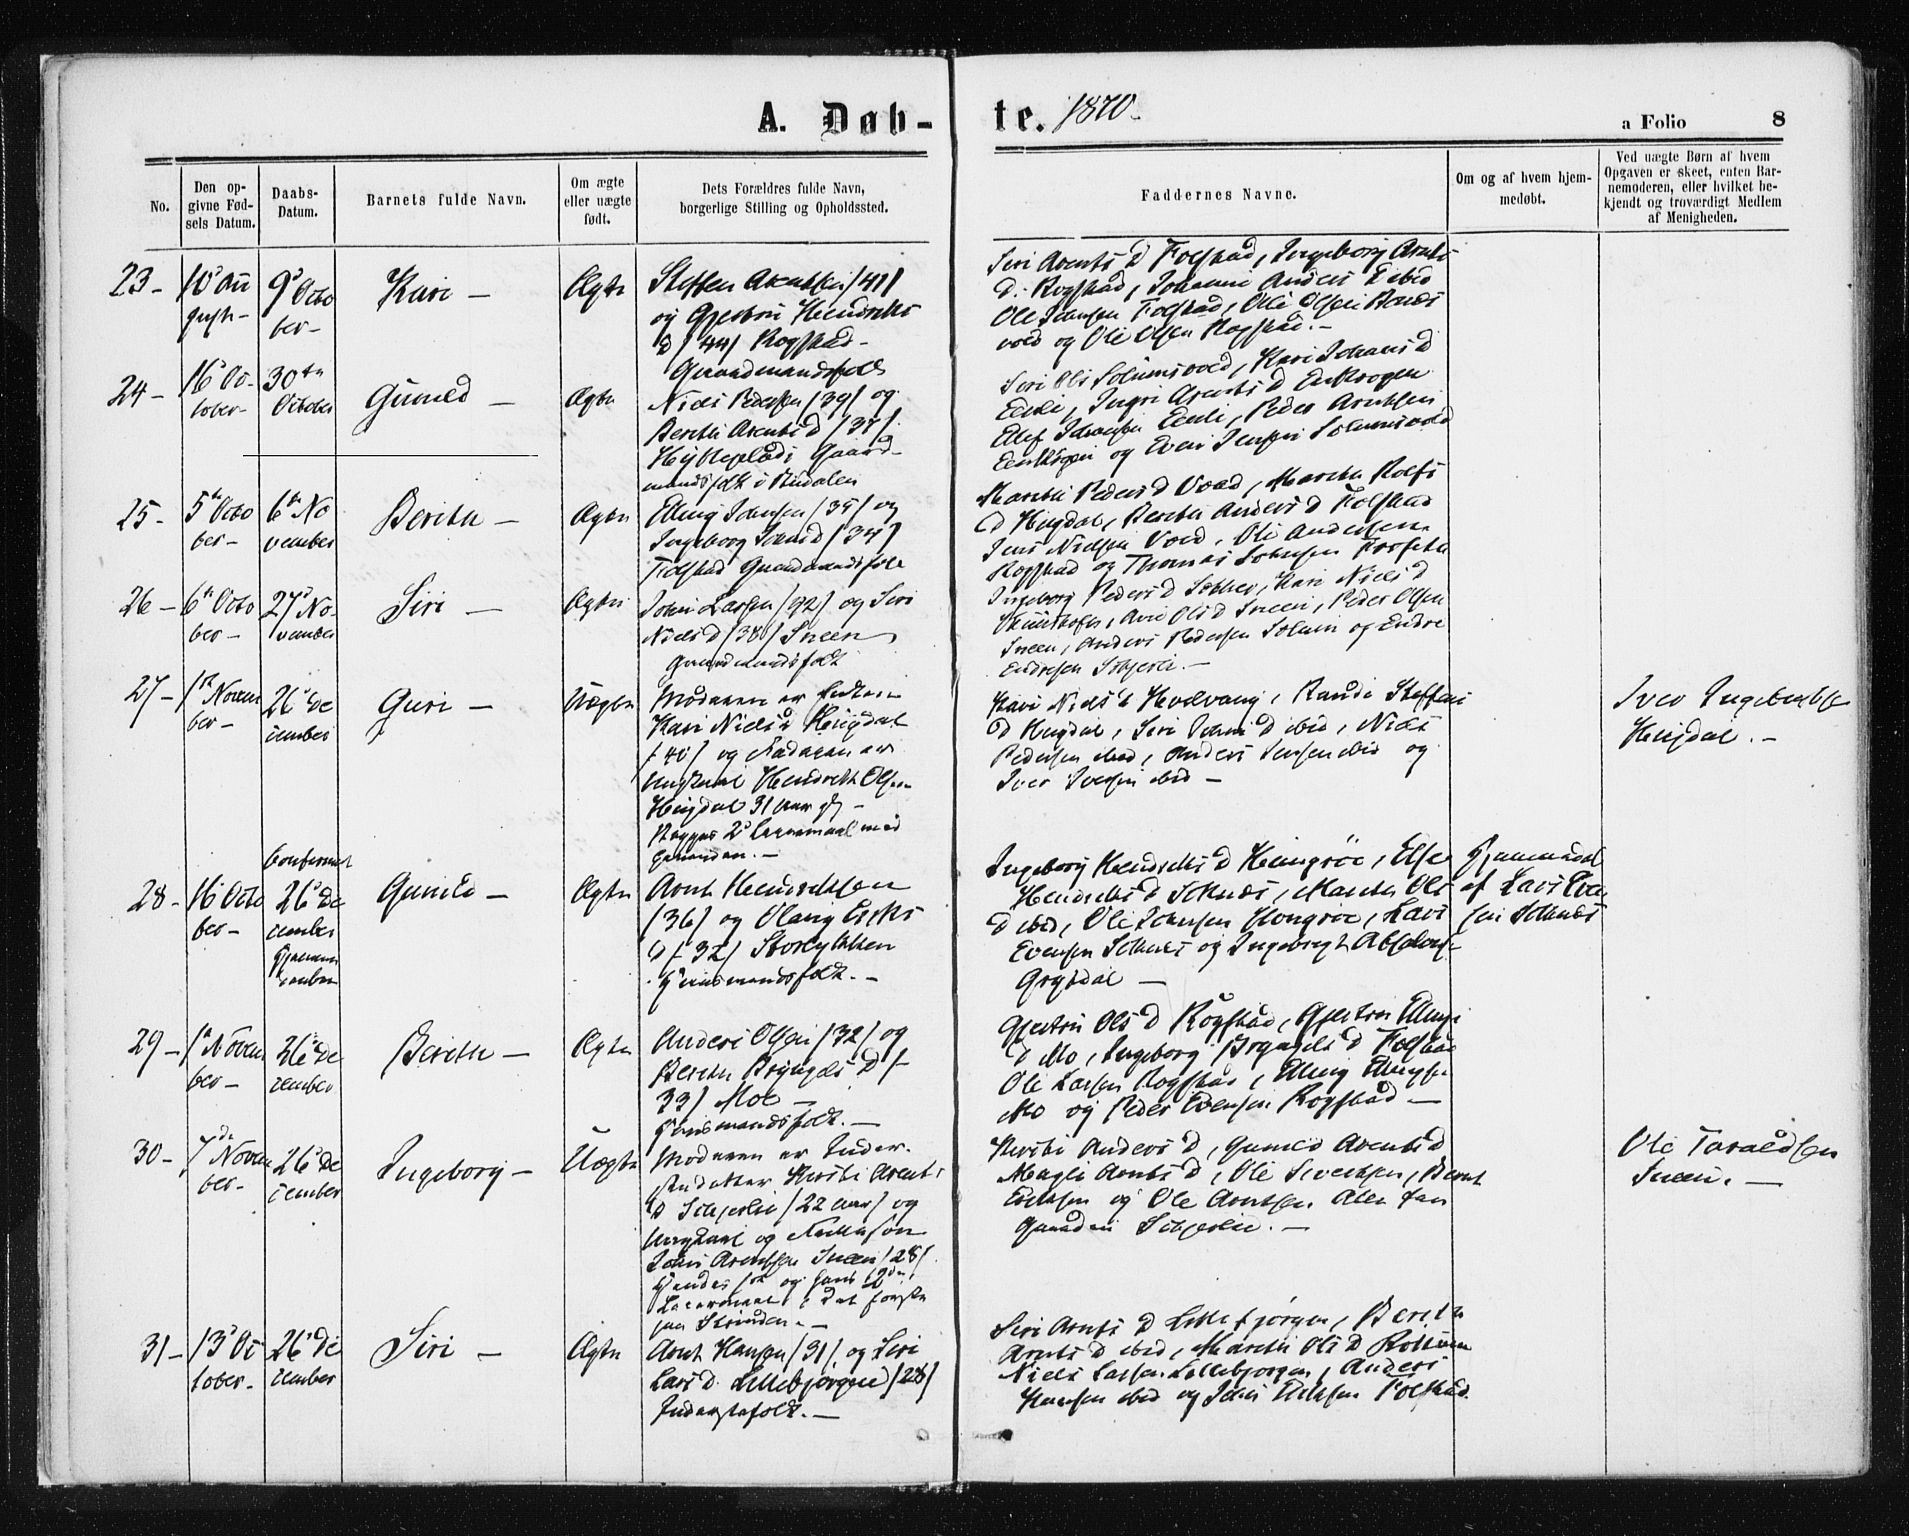 A. Døb-te. 1870.
a Folio 8
No.
Den op-
givne Fød-
sels Datum.
Daabs-
Datum.
Barnets fulde Navn.
Om ægte
eller uægte
født.
Dets Forældres fulde Navn,
borgerlige Stilling og Opholdssted.
Faddernes Navne.
Om og af hvem hjem-
medøbt.
Ved uægte Børn af hvem
Opgaven er skeet, enten Bar-
nemoderen, eller hvilket be-
kjendt og troværdigt Medlem
af Menigheden.
23 -
10 Au
gust -
9 Octo
ber -
Kari -
Ægte
Steffen Arntsen /41/
og Gjertru Hendriks
D /44/ Rogstad
Gaardmandsfolk
Siri Arnts D Folstad, Ingeborg Arnts
D. Rogstad, Johanna Anders D ibid
Ole Johnsen Folstad, Ole Olsen
vold og Ole Olsen Rogstad. -
24 -
16 Oc-
tober -
30te
October
Gunild -
Ægte
Niels Pedersen /39/ og
Berethe Arnts D /37/
Gaard-
mandsfolk i Budalen
Siri Ols Solumsvold, Kari Johans D
Ingri Arnts D Enkrogen
Peder Arntsen
og Even Jensen Solumsvold
25 -
5te Octo
ber -
6te No
vember
Berethe -
Ægte
Elling Johnsen /35/ og
Ingeborg Johns D /34/
Folstad Gaardmandsfolk
Marethe Peders D Vold, Marethe Rolfs
D Hugdal, Berethe Anders D Folstad
Jens Nielsen Vold, Ole Andersen
Rogstad og Thomas Johnsen
26 -
6te Octo
ber -
27 No-
vember
Siri -
Ægte
John Larsen /92/ og Siri
Niels D /38/ Sneen
Gaardmandsfolk
Ingeborg Peders D Sokker, Kari Niels D
Ols D Sneen, Peder Olsen
Sneen, Anders Pedersen Solem og Endre
Endresen
27 -
1ste Novem
ber -
26 De
cember
Guri -
Uægte
Moderen er
Kari Niels D Hugdal
/40/ og Faderen er
Ungkarl Hendrik Olsen
Hugdal 31 Aar gl. -
Begges 2 Leiermaal med
hinanden. -
Kari Niels D Hvelvang, Randi Steffens
D Hugdal, Siri Johns D ibid, Niels
Pedersen ibid, Anders Jensen ibid og
Iver Iversen ibid -
Iver Ingebr
Hugdal. -
28 -
16 Octo
ber -
Confirmert
26 De
cember
Gunild -
Ægte
Arnt Hendriksen
/36/ og Olavig Eriks
D /32/ Storlykken
Huusmandsfolk. -
Ingeborg Hendriks D Hongröe, Else
Hendriks D Soknes, Marethe Ols
D ibid, Ole Johnsen Hongröe, Lars
Evensen Soknes og Ingebrigt Absalons
Grytdal -
Hjemmedøbt
af Lars Even
sen Soknes
29 -
1 Novem
ber -
26 De
cember
Berethe -
Ægte
Anders Olsen /32/ og
Berethe Bryngels D /
33/ Moe -
Huusmandsfolk. -
Gjertru Ols D Rogstad, Gjertru Ellings
D Mo, Ingeborg Bryngels D Folstad
Ole Larsen Rogstad, Elling Ellingsen
Mo og Peder Evensen Rogstad -
30 -
7de Novem
ber -
26 De
cember
Ingeborg -
Uægte
Moderen er Inder-
Kirsti Arnts
D /22 Aar/ og
Ungkarl og
John Arntsen Sneen /28/
Hendes 1ste og hans 2de
Leiermaal, det første
paa Strinden. -
Kirsti Anders D, Gunild Arnts D
Magli Arnts D, Ole Sivertsen, Bernt
Eriksen og Ole Arntsen Alle fra
Gaarden -
Ole Taraldsen
Sneen. -
31 -
13 Oc
tober -
26 De
cember
Siri -
Ægte
Arnt Hansen /31/ og Siri
Lars D. Lillebjørgen /28/
Inderstefolk. -
Siri Arnts D Lillebjørgen, Berethe
Arnts D ibid, Marethe Ols D
Niels Larsen Lillebjørgen, Anders
Hansen ibid og John Eriksen Folstad